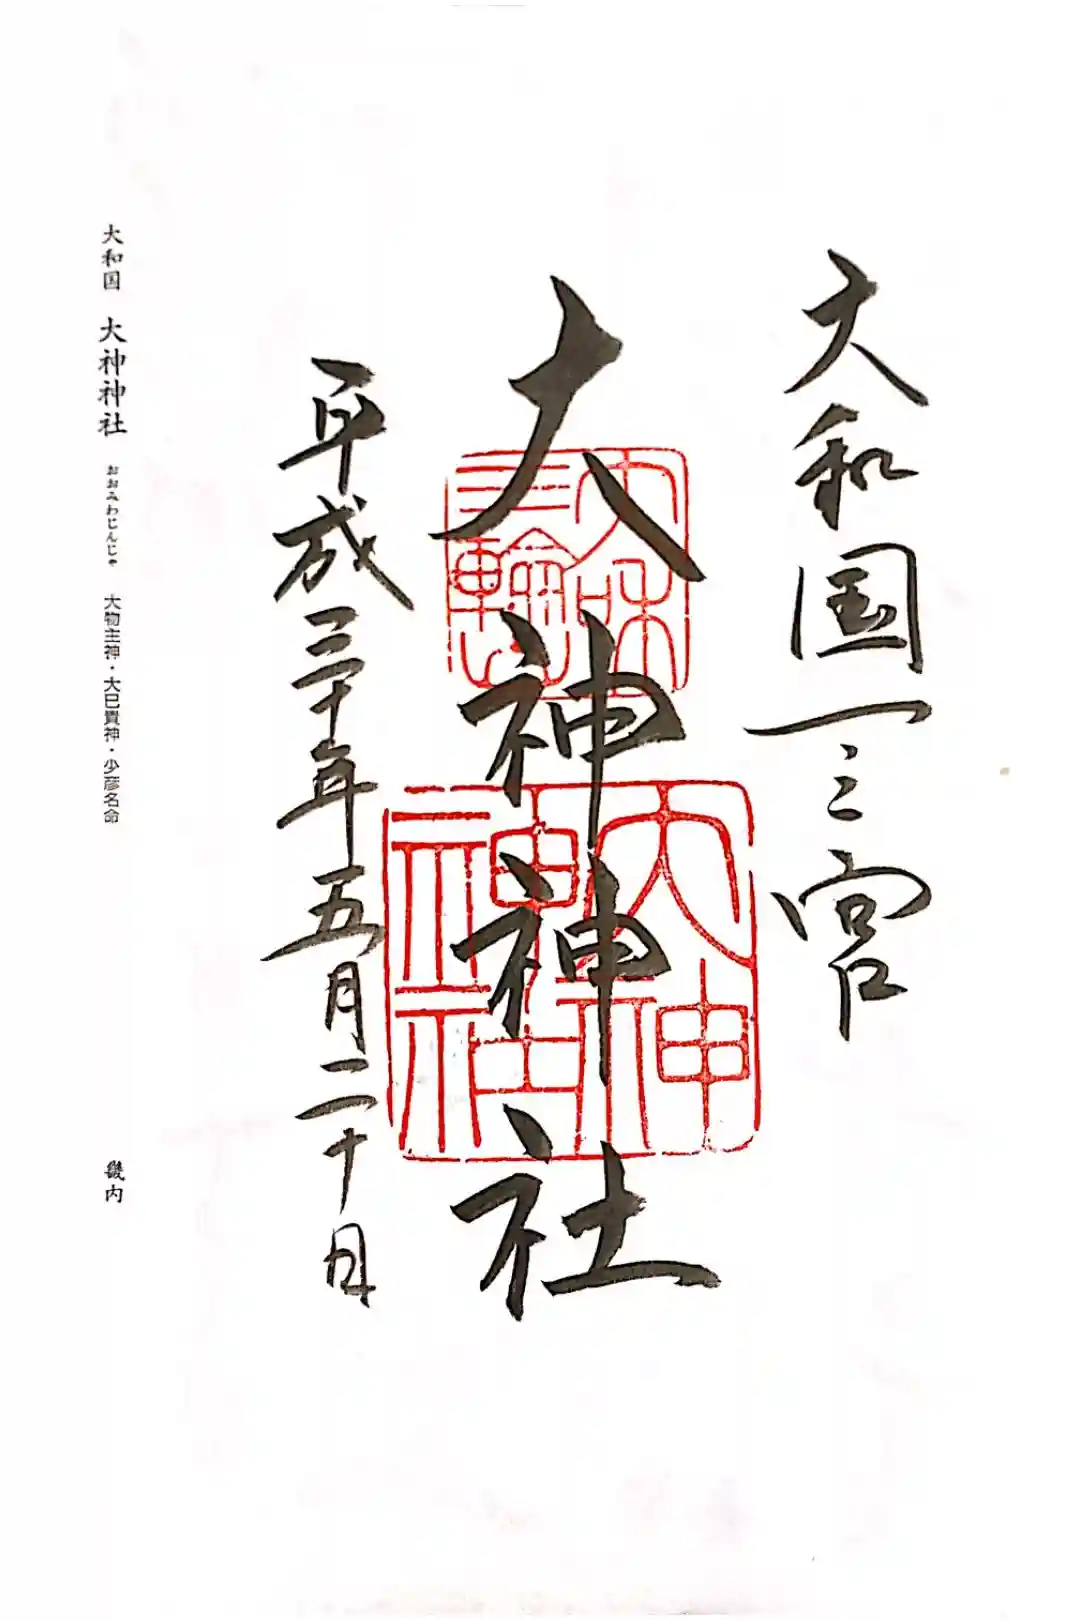 大和国一之宮
大神神社
平成三十年五月二十日
大和
三輪山
大神
神社
大和国 大神神社 おおみわじんじゃ 大物主神・大巳貴神・少彦名命
畿内